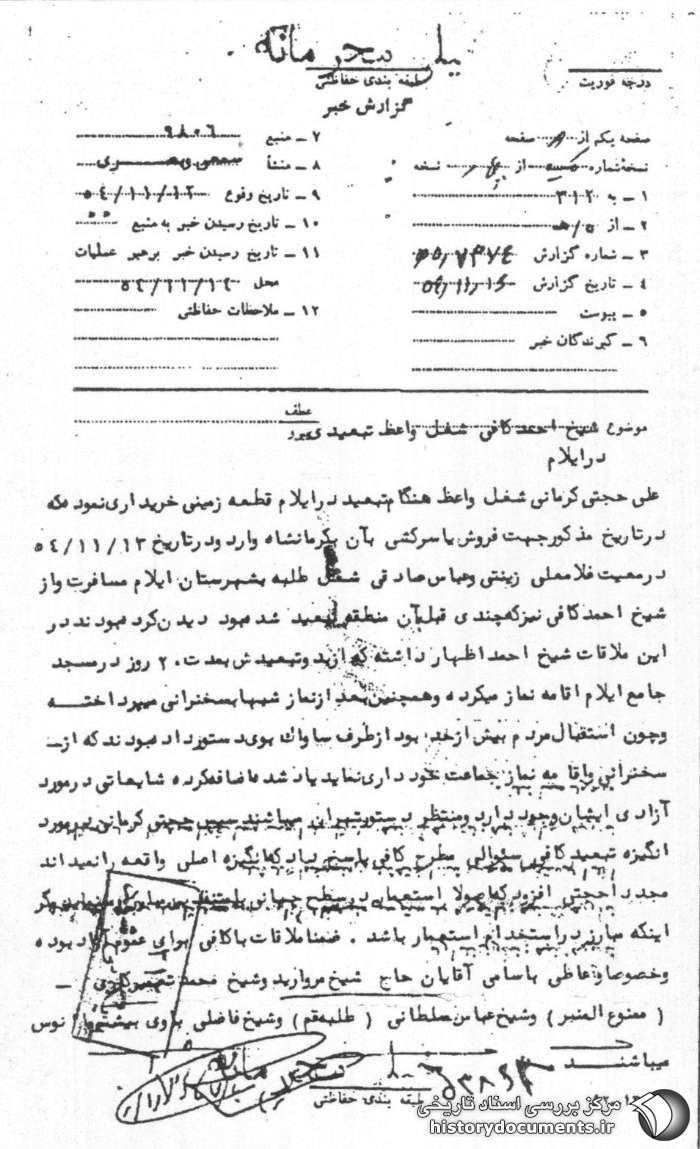 خیلی محرمانه
طبقه بندی حفاظتی
گزارش خبر
درجه فوریت
صفحه یکم از صفحه
نسخه شماره از نسخه
۱ ــ به ۳۱۲
۲ ــ از ۵/هـ
۳ ــ شماره گزارش
۴ ــ تاریخ گزارش
۵ ــ پیوست
۶ ــ گیرندگان خبر
۷ ــ منبع ۹۸۰۶
۸ ــ منشأ
۹ ــ تاریخ وقوع ۵٤/۱۱/۱۲
۱۰ ــ تاریخ رسیدن خبر به منبع
۱۱ ــ تاریخ رسیدن خبر برهبر عملیات
محل ۵٤/۱۱/۱٤
۱۲ ــ ملاحظات حفاظتی
موضوع شیخ احمد کافی شغل واعظ تبعیدی
عطف
درایلام
علی حجتی کرمانی شغل واعظ هنگام تبعید درایلام قطعه زمینی خریداری نموده که
درتاریخ مذکور جهت فروش یا سرکشی بآن بکرمانشاه وارد ودرتاریخ ۵٤/۱۱/۱۳
درمعیت غلامعلی زینتی وعباس صادقی شغل طلبه بشهرستان ایلام مسافرت واز
شیخ احمد کافی نیزکه چندی قبل بآن منطقه تبعید شده بود دیدن کرده بودند در
این ملاقات شیخ احمد اظهار داشته که از بدوتبعیدش بمدت ۲۰ روز درمسجد
جامع ایلام اقامه نماز میکرده وهمچنین بعد ازنماز شبها بسخنرانی میپرداخته
وچون استقبال مردم بیش ازحد بود ازطرف ساواك بوی دستور داده بودند که از ــ
سخنرانی واقامه نماز جماعت خودداری نماید یاد شده اضافه کرده شایعاتی درمورد
آزادی ایشان وجود دارد ومنتظر دستور تهران میباشند سپس حجتی کرمانی درمورد
انگیزه تبعید کافی سئوالی مطرح کافی پاسخ داد که انگیزه اصلی واقعه را نمیداند
مجددا حجتی افزود که اصولا استعمار درسطح جهانی
اینکه مبارز دراستخدام استعمار باشد . ضمنا ملاقات باکافی برای عموم آزاد بوده
وخصوصا وعاظی باسامی آقایان حاج شیخ مروارید وشیخ محمد
( ممنوع المنبر ) وشیخ عباس سلطانی ( طلبه قم ) وشیخ فاضلی باوی بیشتر مأنوس
میباشند
خیلی محرمانه
طبقه بندی حفاظتی
مرکز بررسی اسناد تاریخی
historydocuments.ir